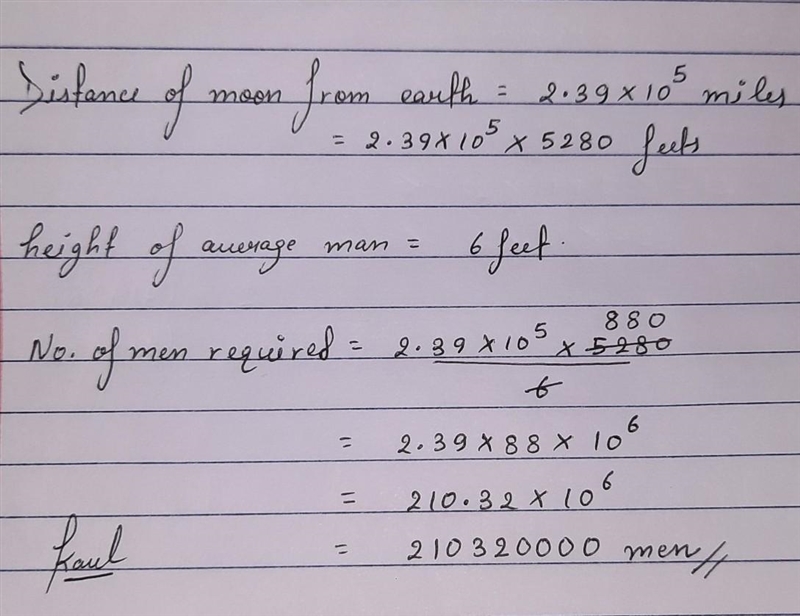 Distance of moon from earth = 2.39 × 10^5 miles
= 2.39 × 10^5 × 5280 feets
height of average man = 6 feet.
No. of men required = 2.39 × 10^5 × 5280 880
6
= 2.39 × 88 × 10^6
= 210.32 × 10^6
= 210320000 men //
Kaul